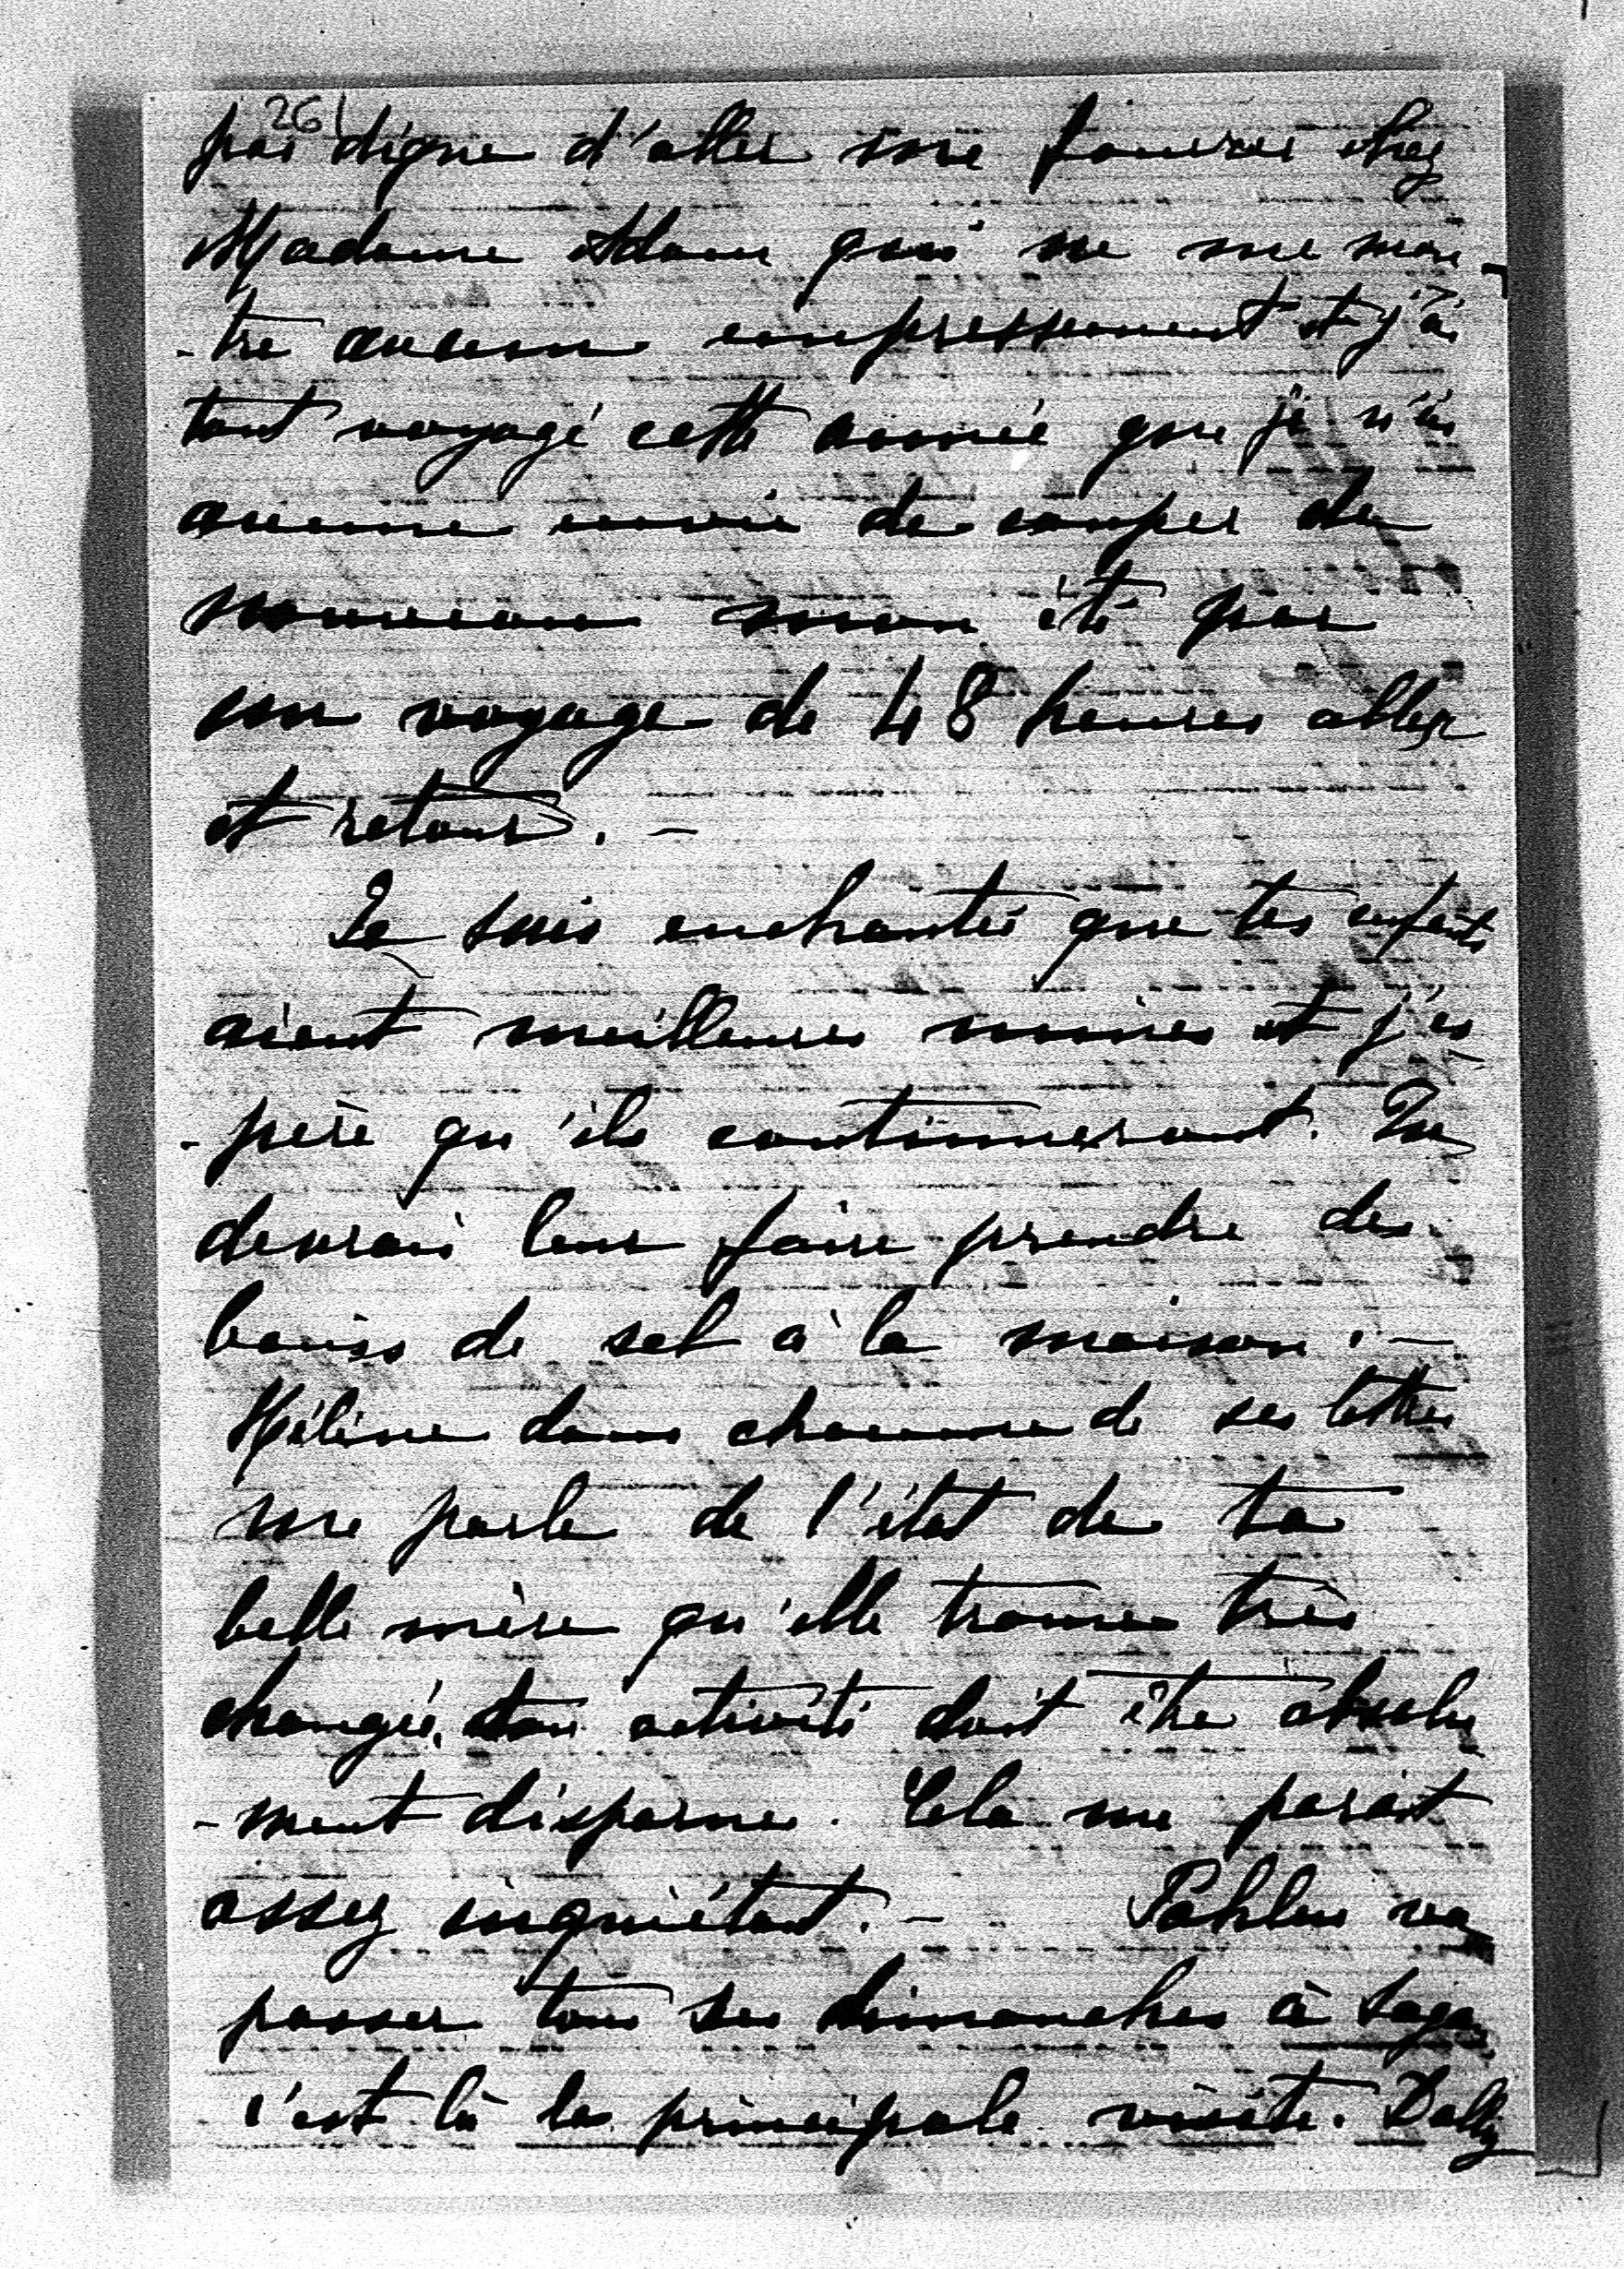 261
pas digne d'aller me fourrer chez
Madame Adam qui ne me mon-
-tre aucun empressement et j'ai
tant voyagé cette année que je n'ai
aucune envie de couper de
nouveau mon été par
un voyage de 48 heures aller
et retour. -
Je suis enchantée que tes enfants
aient meilleures mines et j'es
-père qu'ils continueront. Tu
devrais leur faire prendre des
bains de sel à la maison. -
Hélène dans chacune de ses lettres
me parle de l'état de ta
belle mère qu'elle trouve très
changée, son activité doit être absolu
-ment disparue. Cela me parait
assez inquiétant. - Pahlen va
passer tous ses dimanches à Sagan
c'est là la principale visite. Dolly